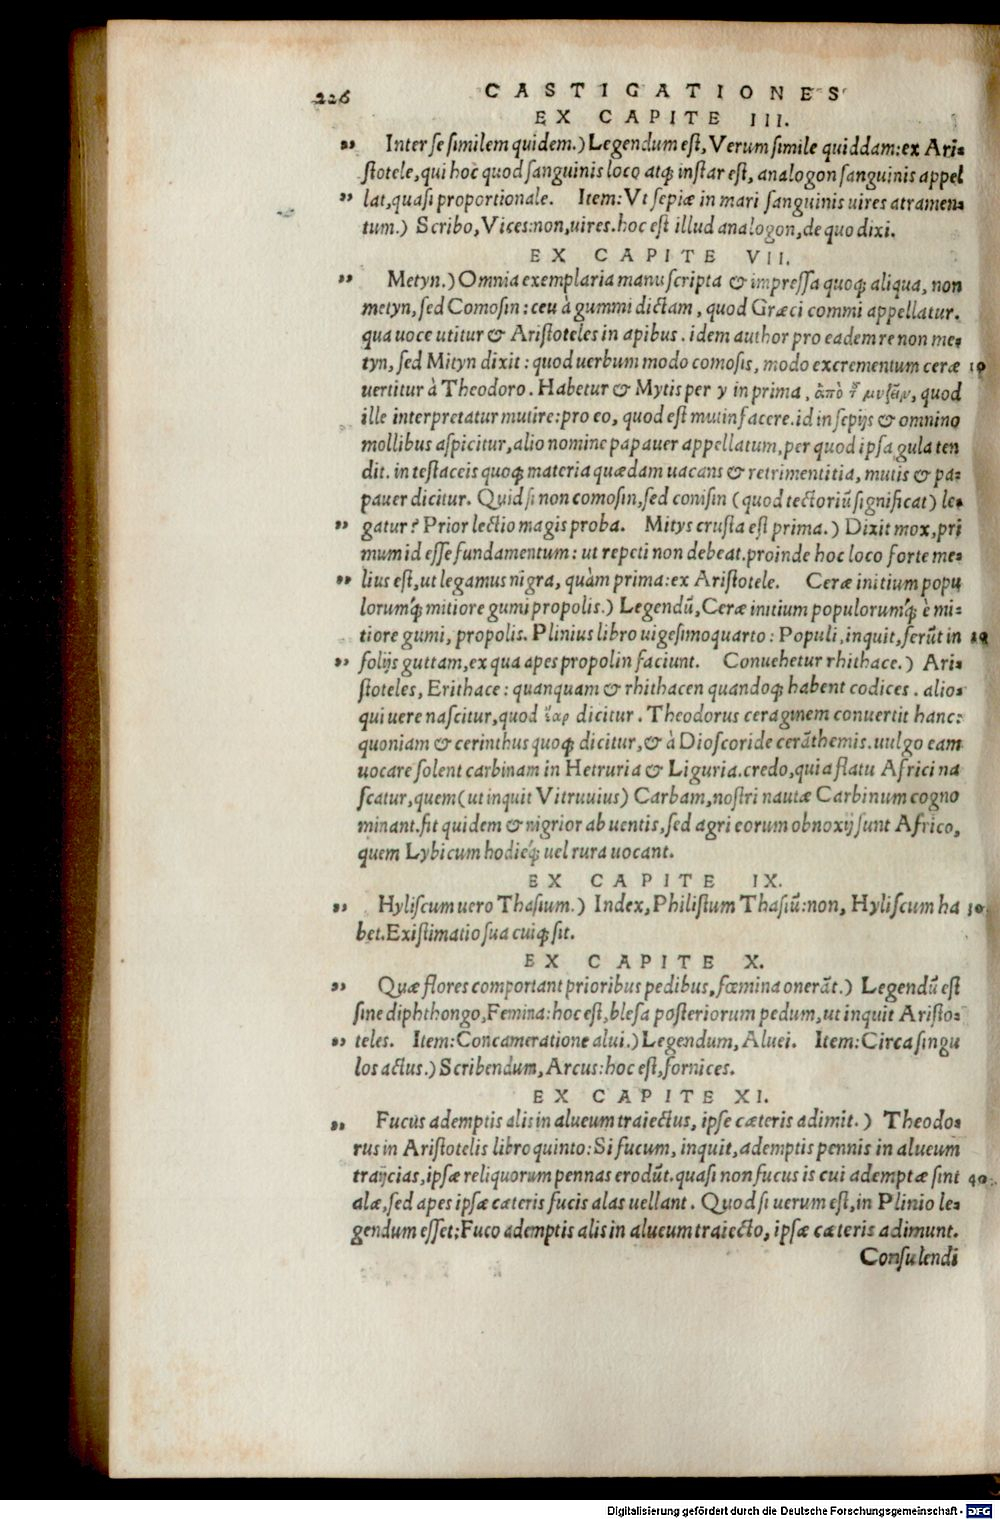 226 CASTIGATIONES
EX CAPITE III.
„ Inter se similem quidem.) Legendum est, Verum simile quiddam: ex Ari-
stotele, qui hoc quod sanguinis loco atq; instar est, analogon sanguinis appel
„ lat, quasi proportionale. Item: Vt sepiæ in mari sanguinis uires atramen-
tum.) Scribo, Vices: non, uires. hoc est illud analogon, de quo dixi.
EX CAPITE VII.
„ Metyn.) Omnia exemplaria manuscripta & impressa quoq; aliqua, non
metyn, sed Comosin: ceu à gummi dictam, quod Græci commi appellatur.
qua uoce utitur & Aristoteles in apibus. idem author pro eadem re non me-
tyn, sed Mityn dixit: quod uerbum modo comosis, modo excrementum ceræ 10
uertitur à Theodoro. Habetur & Mytis per y in prima, ἀπὸ τ μυξῶν, quod
ille interpretatur mutire: pro eo, quod est mutinfacere. id in sepijs & omnino
mollibus aspicitur, alio nomine papauer appellatum, per quod ipsa gula ten
dit. in testaceis quoq; materia quædam uacans & retrimentitia, mutis & pa-
pauer dicitur. Quid si non comosin, sed conisin (quod tectoriū significat) le-
„ gatur? Prior lectio magis proba. Mitys crusta est prima.) Dixit mox, pri
mum id esse fundamentum: ut repeti non debeat. proinde hoc loco forte me-
„ lius est, ut legamus nigra, quàm prima: ex Aristotele. Ceræ initium popu
lorumq́; mitiore gumi propolis.) Legendū, Ceræ initium populorumq́; è mi-
tiore gumi, propolis. Plinius libro uigesimoquarto: Populi, inquit, ferūt in 20
„ folijs guttam, ex qua apes propolin faciunt. Conuehetur rhithace.) Ari-
stoteles, Erithace: quanquam & rhithacen quandoq; habent codices. alios
qui uere nascitur, quod ἔαρ dicitur. Theodorus ceraginem conuertit hanc:
quoniam & cerinthus quoq; dicitur, & à Dioscoride cerāthemis. uulgo eam
uocare solent carbinam in Hetruria & Liguria. credo, quia flatu Africi na
scatur, quem (ut inquit Vitruuius) Carbam, nostri nautæ Carbinum cogno
minant. fit quidem & nigrior ab uentis, sed agri eorum obnoxij sunt Africo,
quem Lybicum hodieq́; uel rura uocant.
EX CAPITE IX.
„ Hyliscum uero Thasium.) Index, Philistum Thasiū: non, Hyliscum ha 30
bet. Existimatio sua cuiq; sit.
EX CAPITE X.
„ Quæ flores comportant prioribus pedibus, fœmina onerāt.) Legendū est
sine diphthongo, Femina: hoc est, blesa posteriorum pedum, ut inquit Aristo-
„ teles. Item: Concameratione alui.) Legendum, Aluei. Item: Circa singu
los actus.) Scribendum, Arcus: hoc est, fornices.
EX CAPITE XI.
„ Fucus ademptis alis in alueum traiectus, ipse cæteris adimit.) Theodo-
rus in Aristotelis libro quinto: Si fucum, inquit, ademptis pennis in alueum
traijcias, ipsæ reliquorum pennas erodūt. quasi non fucus is cui ademptæ sint 40
alæ, sed apes ipsæ cæteris fucis alas uellant. Quod si uerum est, in Plinio le-
gendum esset; Fuco ademptis alis in alueum traiecto, ipsæ cæteris adimunt.
Consulendi
Digitalisierung gefördert durch die Deutsche Forschungsgemeinschaft - DFG